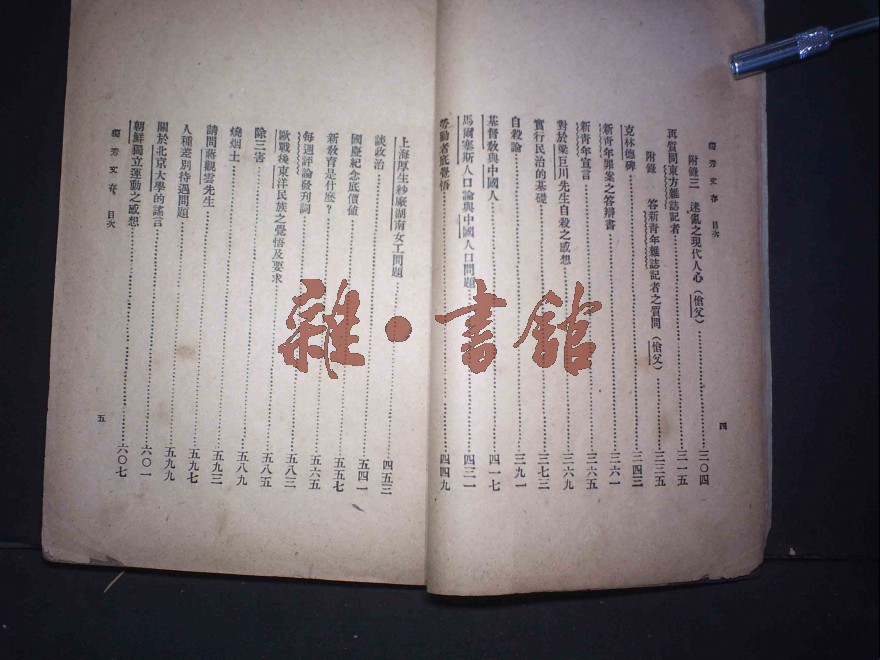 獨秀文存 目次
附錄三 迷亂之現代人心（傖父）……三〇四
再質問東方雜誌記者……三一五
附錄 答新青年雜誌記者之質問（傖父）……三三五
克林德碑……三四三
新青年罪案之答辯書……三六一
新青年宣言……三六五
對於梁巨川先生自殺之感想……三六九
實行民治的基礎……三七三
自殺論……三九一
基督教與中國人……四一七
馬爾塞斯人口論與中國人口問題……四三一
勞動者底覺悟……四四九
四
上海厚生紗廠湖南女工問題……四五三
談政治……五四一
國慶紀念底價值……五五七
新教育是什麼？……五六五
每週評論發刊詞……五八三
歐戰後東洋民族之覺悟及要求……五八五
除三害……五八九
燒烟土……五九三
請問蔣觀雲先生……五九七
人種差別待遇問題……五九九
關於北京大學的謠言……六〇一
朝鮮獨立運動之感想……六〇七
獨秀文存 目次
五
雜·書館